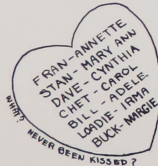 FRAN-ANNETTE
STAN-MARY ANN
DAVE-CYNTHIA
CHET-CAROL
BILL-ADELE
LOADIE-IRMA
BUCK-MARGIE
WHAT? NEVER BEEN KISSED?